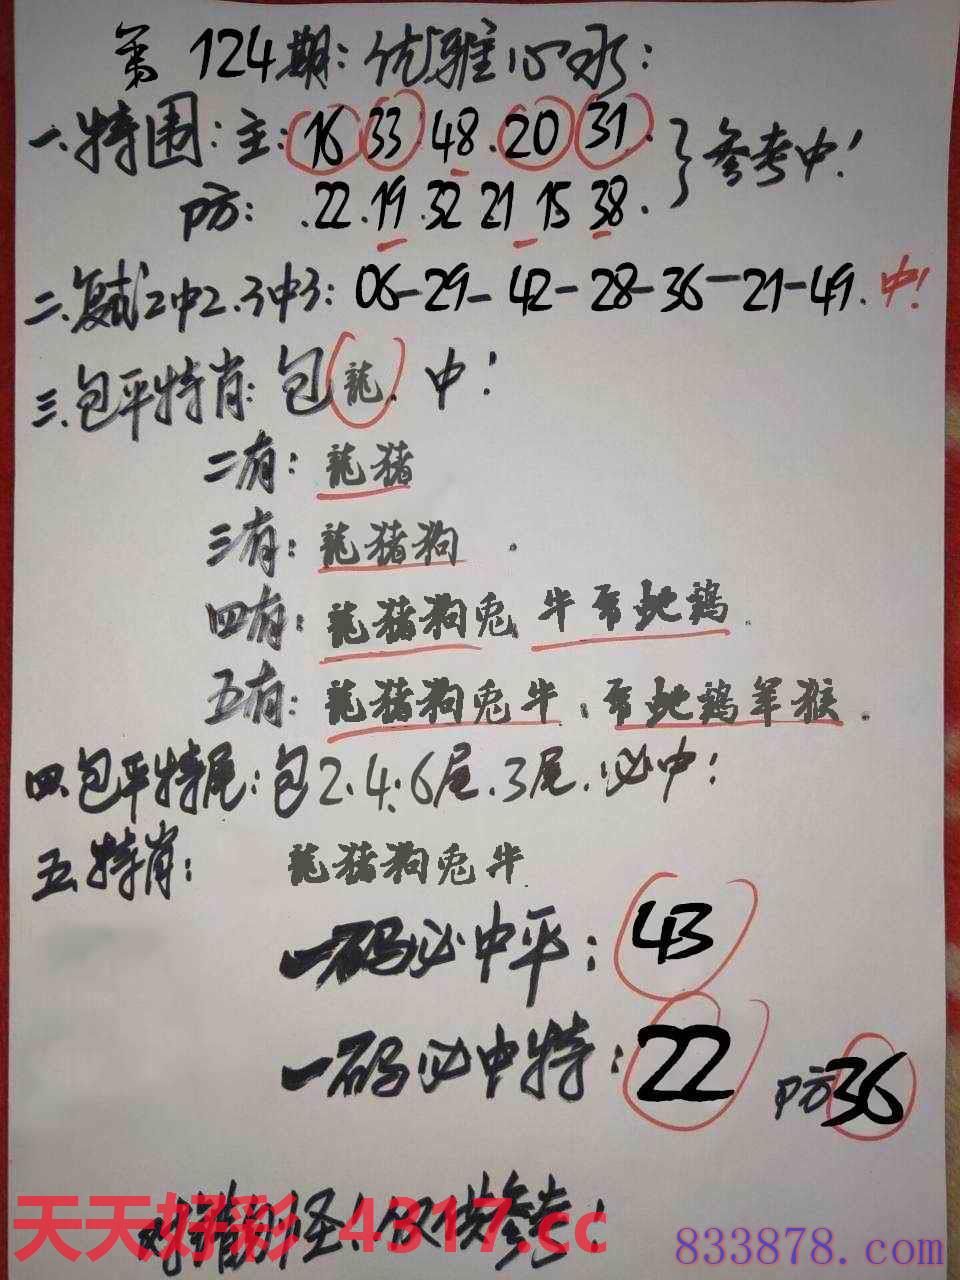 第124期:优雅心水:
一.特围:主:16 33.48.20 31. }参考中!
防: .22.19.32 21 15 38.
二.复式2中2.3中3: 06-29-42-28-36-21-49.中!
三.包平特肖:包龍.中!
二有:龍猪
三有:龍猪狗.
四有:龍猪狗兎 牛 蛇鷄.
五有:龍猪狗兎牛. 蛇鷄羊猴.
四.包平特尾:包2.4.6尾.3尾.必中!
五.特肖: 龍猪狗兎牛
一码必中平:43
一码必中特:22 防36
怪!仅供参考!
天天好彩 4317.cc
833878.com